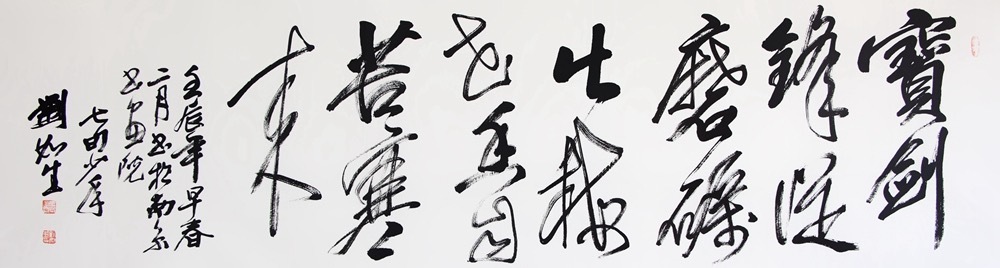 寶劍
鋒從
磨礪
出梅
花香自
苦寒
來
壬辰年早春
二月书於南京
书画院
少年
劉 生